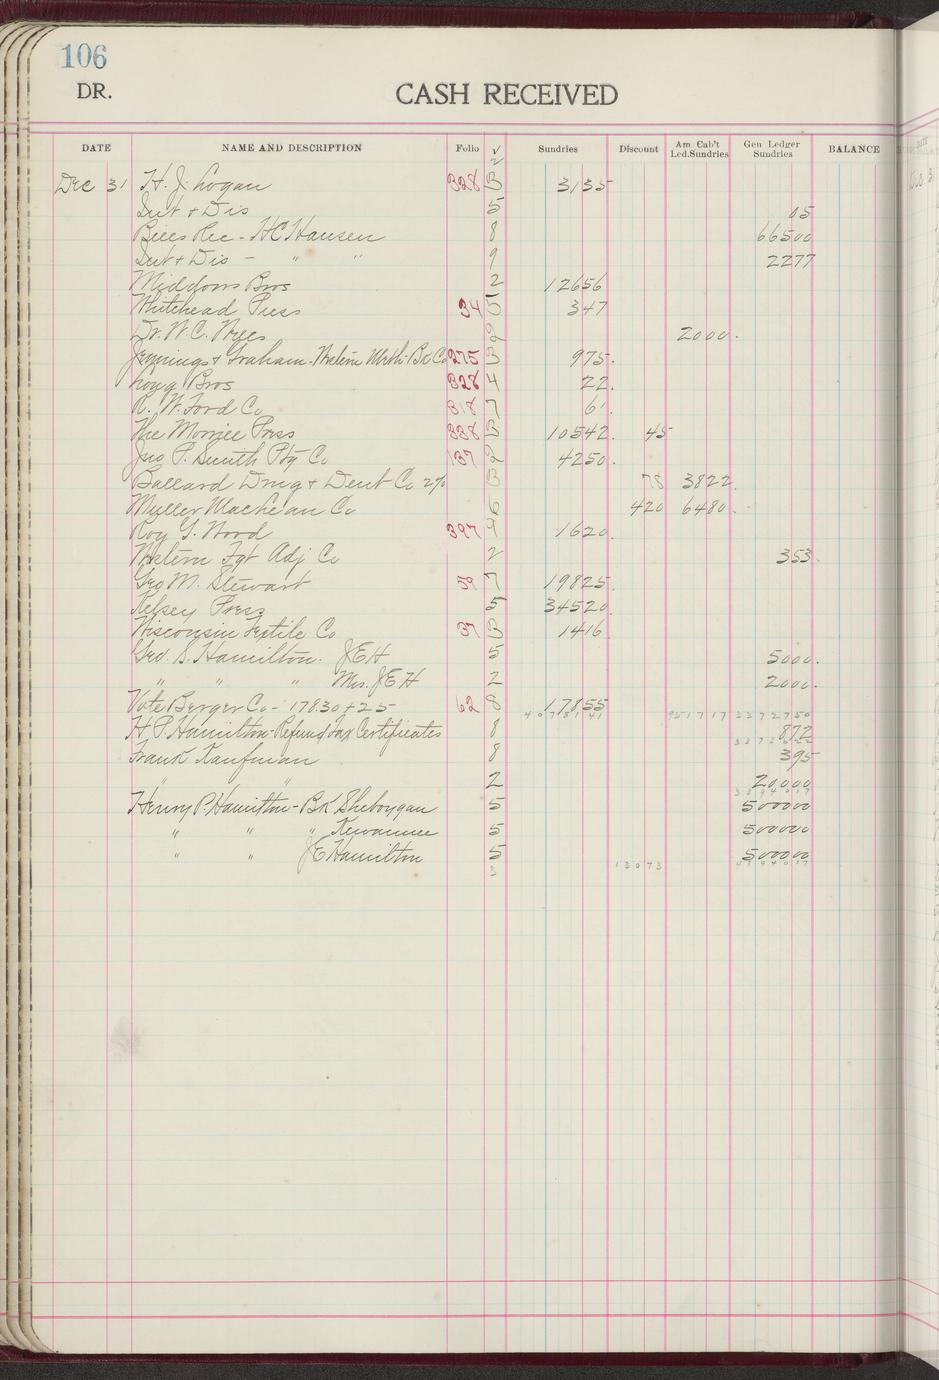 106
DR.
CASH RECEIVED
DATE NAME AND DESCRIPTION Folio √ Sundries Discount Am Cab't Led.Sundries Gen Ledger Sundries BALANCE
2
Dec 31 H. J. Logan 328 3 3135
Int & Dis 5 05
Bills Rec - HC Hansen 8 66500
Int & Dis - " " 9 2277
Middons Bros 2 12656
Whitehead Press 34 5 347
Dr. W. C. Wyes 2 2000.
Jennings & Graham - Western Meth. Bk Co 275 3 975.
Long Bros 328 4 22.
R. W. Ford Co 318 7 61.
The Morrice Press 338 3 10542. 45
Jno P. Smith Ptg Co 137 2 4250.
Ballard Drug & Dent Co 2% 3 78 3822.
Myller MacLean Co 6 420 6480.
Roy G. Wood 397 9 1620.
Western Fgt Adj Co 2 353.
Geo M. Stewart 59 7 19825.
Kelsey Press 5 34520.
Wisconsin Textile Co 37 3 1416.
Geo. S. Hamilton. JEH 5 5000.
" " " Mrs. JEH 2 2000.
Vote Berger Co - 178.30 + 25 62 8 17855
4078141 951717 3372750
H. P. Hamilton - Refund Tax Certificates 8 872
Frank Kaufman 8 395
" " 2 20000
3894017
Henry P. Hamilton - Bk Sheboygan 5 500000
" " " Kewaunee 5 500000
" " JE Hamilton 5 500000
3 13073